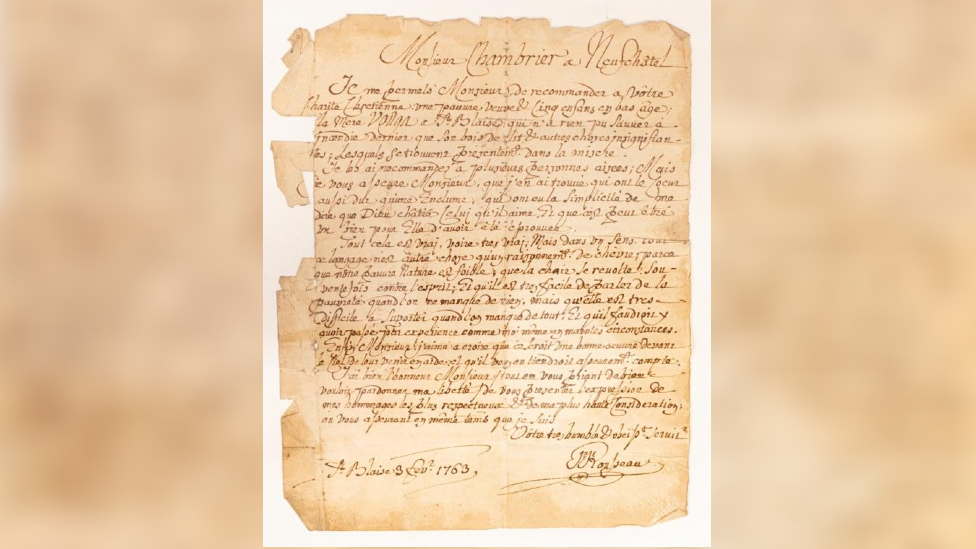 Monsieur Chambrier a Neufchâtel
Je me permets Monsieur de recommander a Vôtre
Charité Chretienne une pauvre veuve & Cinq enfans en bas âge;
la Mere a St Blaise, qui n'a rien pu Sauver a
dernier que son bois de lit & autres choses insignifian-
tes; Lesquels se trouvent presentemt dans la misere.
Je les ai recommandés a plusieurs personnes aisées; Mais
je vous asseure Monsieur, que j'en ai trouvé qui ont le Coeur
aussi dur qu'une Enclume, qui ont eu la Simplicité de me
dire que Dieu châtie Celui qu'il aime, Et que C'est peut être
un bien pour Elle d'avoir été éprouvée.
Tout cela est vrai, voire tres vrai; Mais dans un Sens, tout
ce langage n'est autre chose qu'un raisonnemt de parce
que nôtre pauvre Nature est foible, que la chair Se revolte Sou-
vente fois contre l'esprit; Et qu'il est tres facile de parler de la
pauvreté quand on ne manque de rien, mais qu'elle est tres
difficile a Suporter quand on manque de tout; Et qu'il faudroit y
avoir passé par experience comme moi même en maintes circonstances.
Enfin Monsieur j'aime a croire que ce Seroit une bonne oeuvre devant
& qu'il vous en tiendroit assurement compte.
J'ai bien l'honneur Monsieur tout en vous priant de bien
vouloir pardonner ma liberté de vous presenter l'expression de
mes hommages les plus respectueux & de ma plus haute Consideration;
en vous asseurant en même tems que je suis
Vôtre tres humble & obeist Servitr
St Blaise 3 1763,